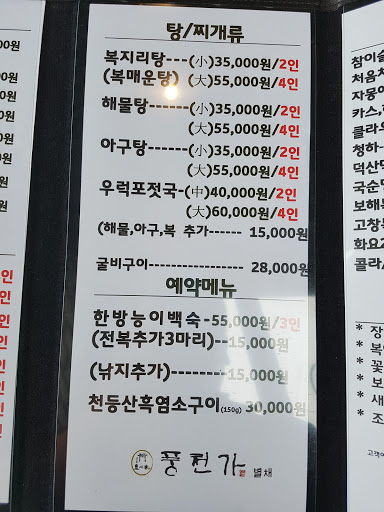 탕/찌개류
복지리탕---(小)35,000원/2인
(복매운탕) (大)55,000원/4인
해물탕-----(小)35,000원/2인
(大)55,000원/4인
아구탕-----(小)35,000원/2인
(大)55,000원/4인
우럭포젓국-(中)40,000원/2인
(大)60,000원/4인
(해물,아구,복 추가------ 15,000원
굴비구이----------------- 28,000원
예약메뉴
한방능이백숙-55,000원/3인
(전복추가3마리)--15,000원
(낙지추가)--------15,000원
천등산흑염소구이(150g) 30,000원
풍전가 별채
000원
인
인
인
인
인
인
인
참이슬
처음
자몽
카스,
클라
청하-
덕산
국순
보해
고창
화요
콜라
* 장
* 복
* 꽃
* 보
* 새
* 조
고객